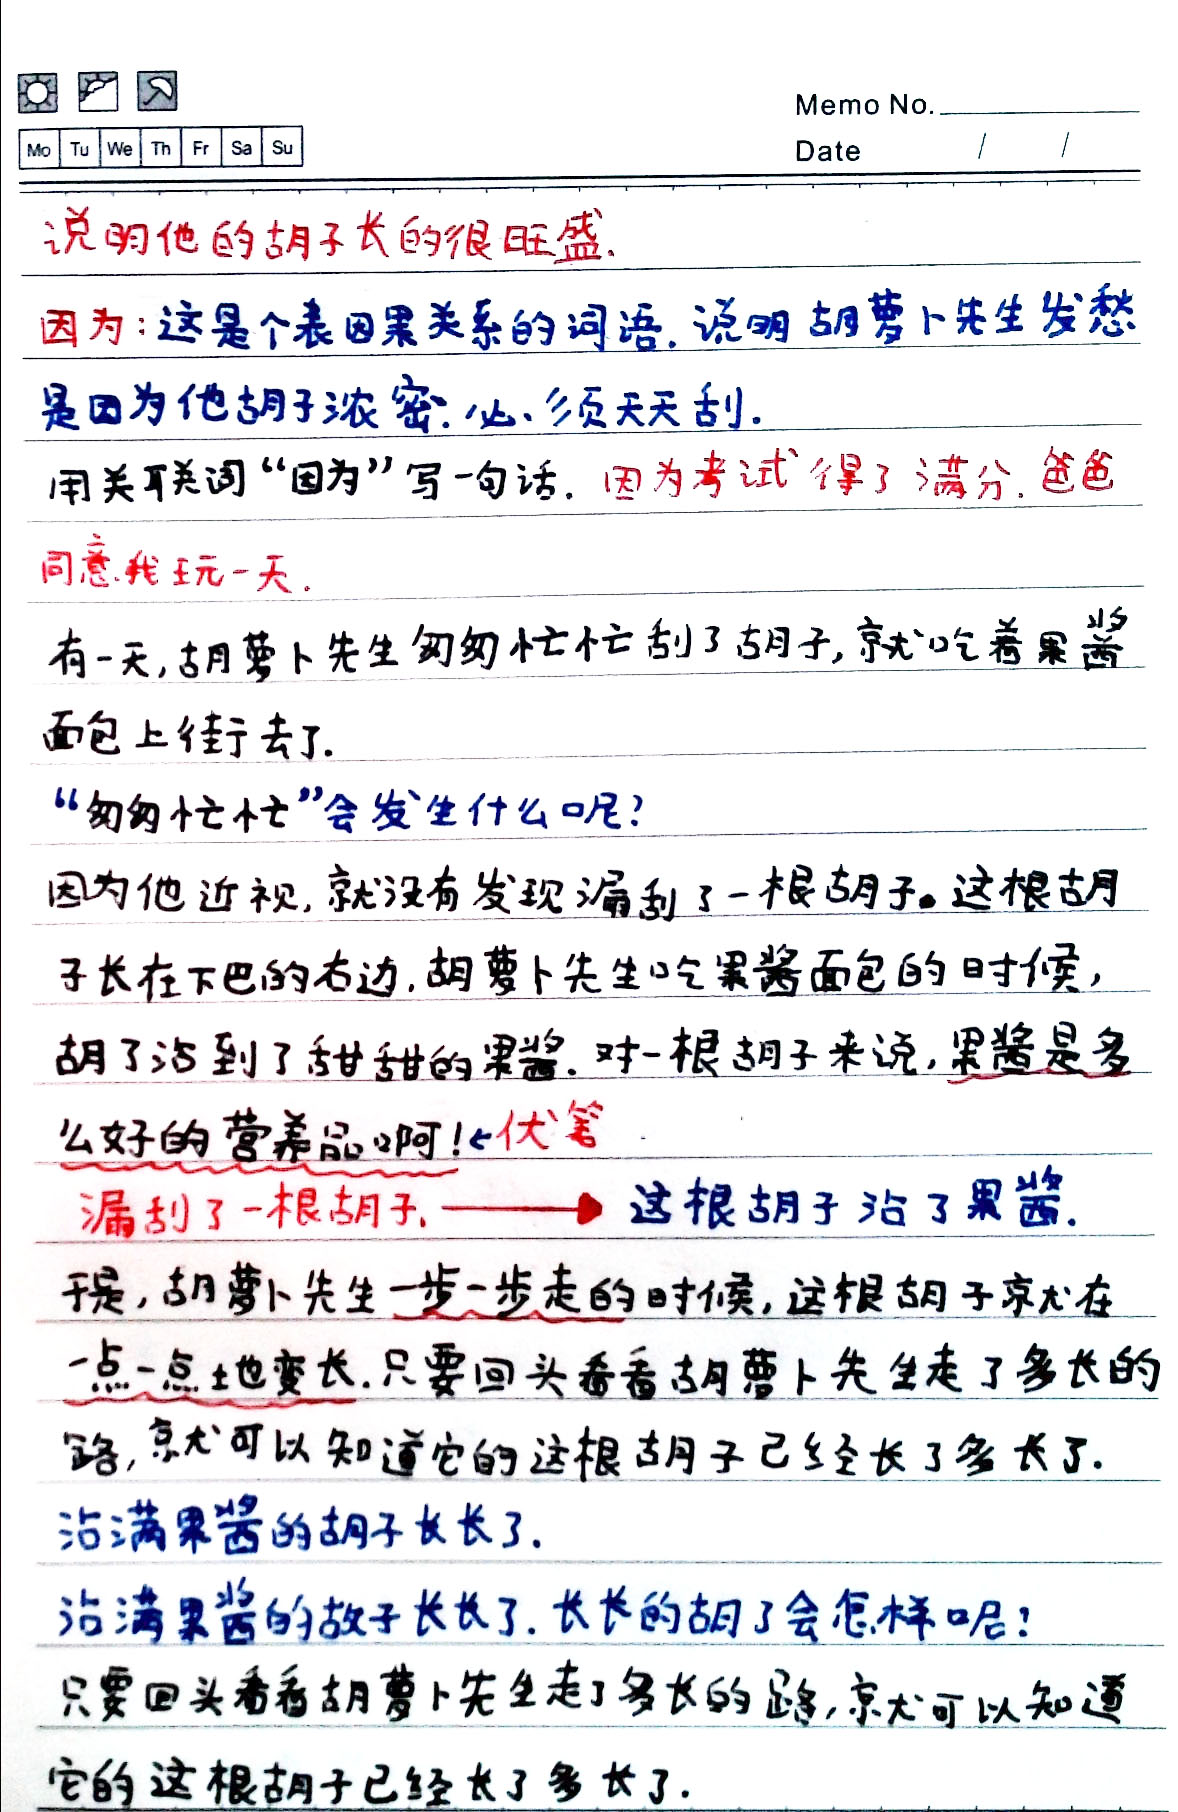 Memo No.
Mo Tu We Th Fr Sa Su
Date / /
说明他的胡子长的很旺盛.
因为:这是个表因果关系的词语.说明胡萝卜先生发愁
是因为他胡子浓密.必须天天刮.
用关联词“因为”写一句话.因为考试得了满分.爸爸
同意我玩一天.
有一天,胡萝卜先生匆匆忙忙刮了胡子,就吃着果酱
面包上街去了.
“匆匆忙忙”会发生什么呢?
因为他近视,就没有发现漏刮了一根胡子。这根胡
子长在下巴的右边,胡萝卜先生吃果酱面包的时候,
胡了沾到了甜甜的果酱.对一根胡子来说,果酱是多
么好的营养品啊!←伏笔
漏刮了一根胡子.→这根胡子沾了果酱.
于是,胡萝卜先生一步一步走的时候,这根胡子就在
一点一点地变长.只要回头看看胡萝卜先生走了多长的
路,就可以知道它的这根胡子已经长了多长了.
沾满果酱的胡子长长了.
沾满果酱的故子长长了.长长的胡了会怎样呢?
只要回头看看胡萝卜先生走了多长的路,就可以知道
它的这根胡子已经长了多长了.